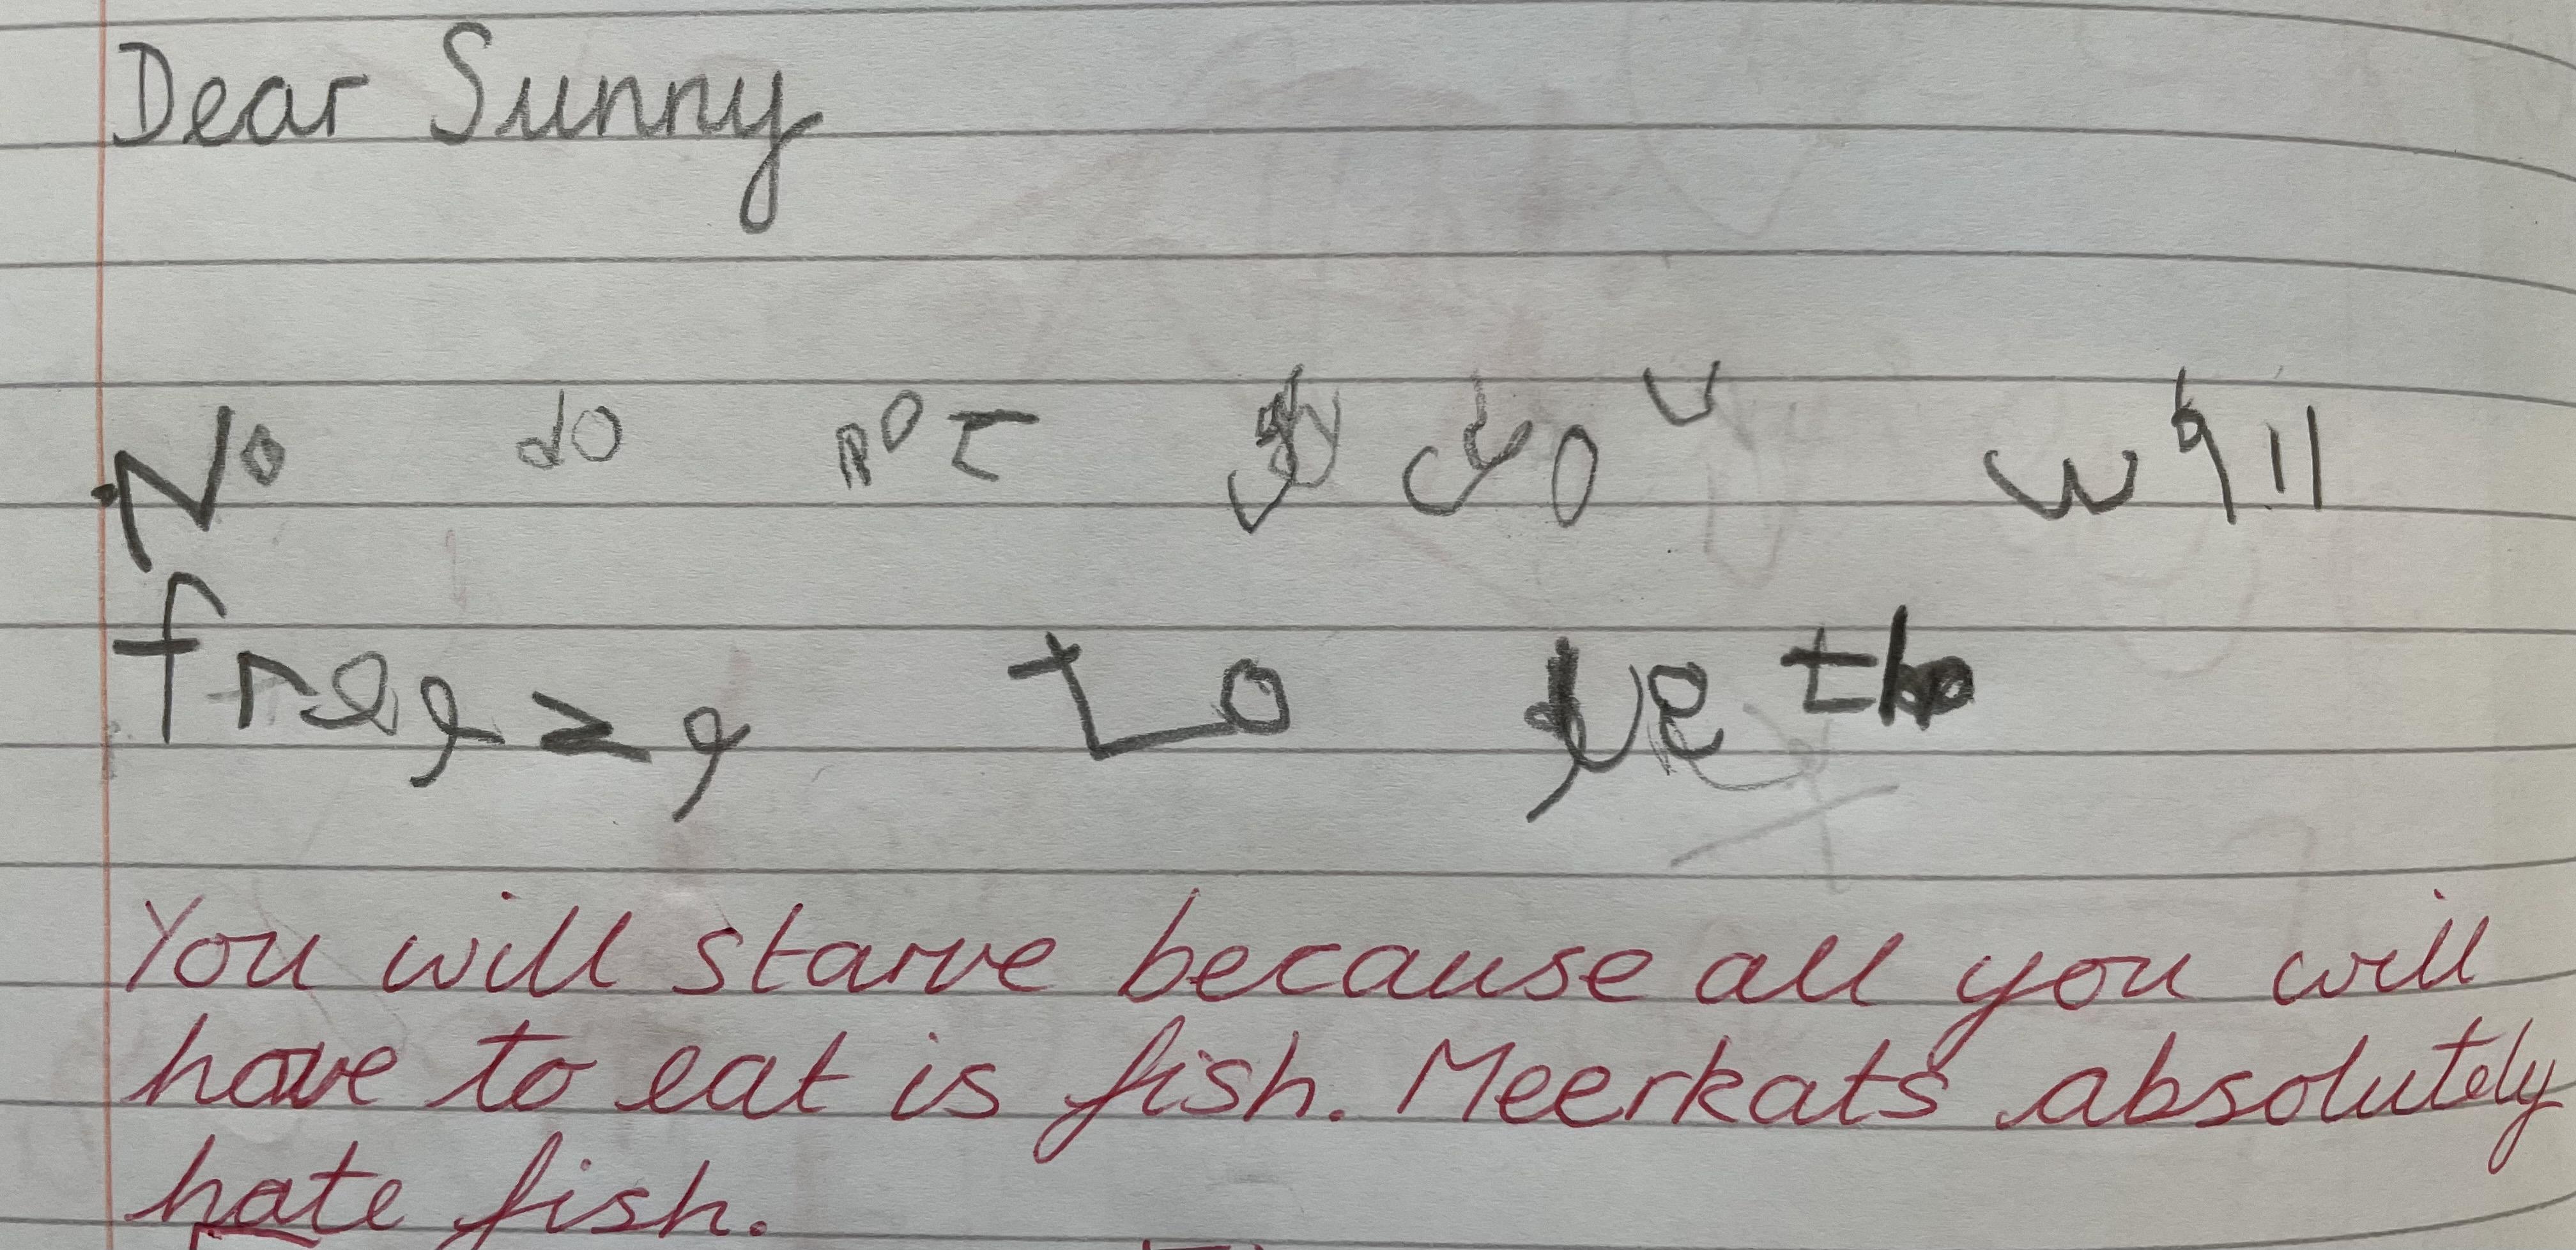 Dear Sunny
No do not you will
freeze to deth
You will starve because all you will
have to eat is fish. Meerkats absolutely
hate fish.